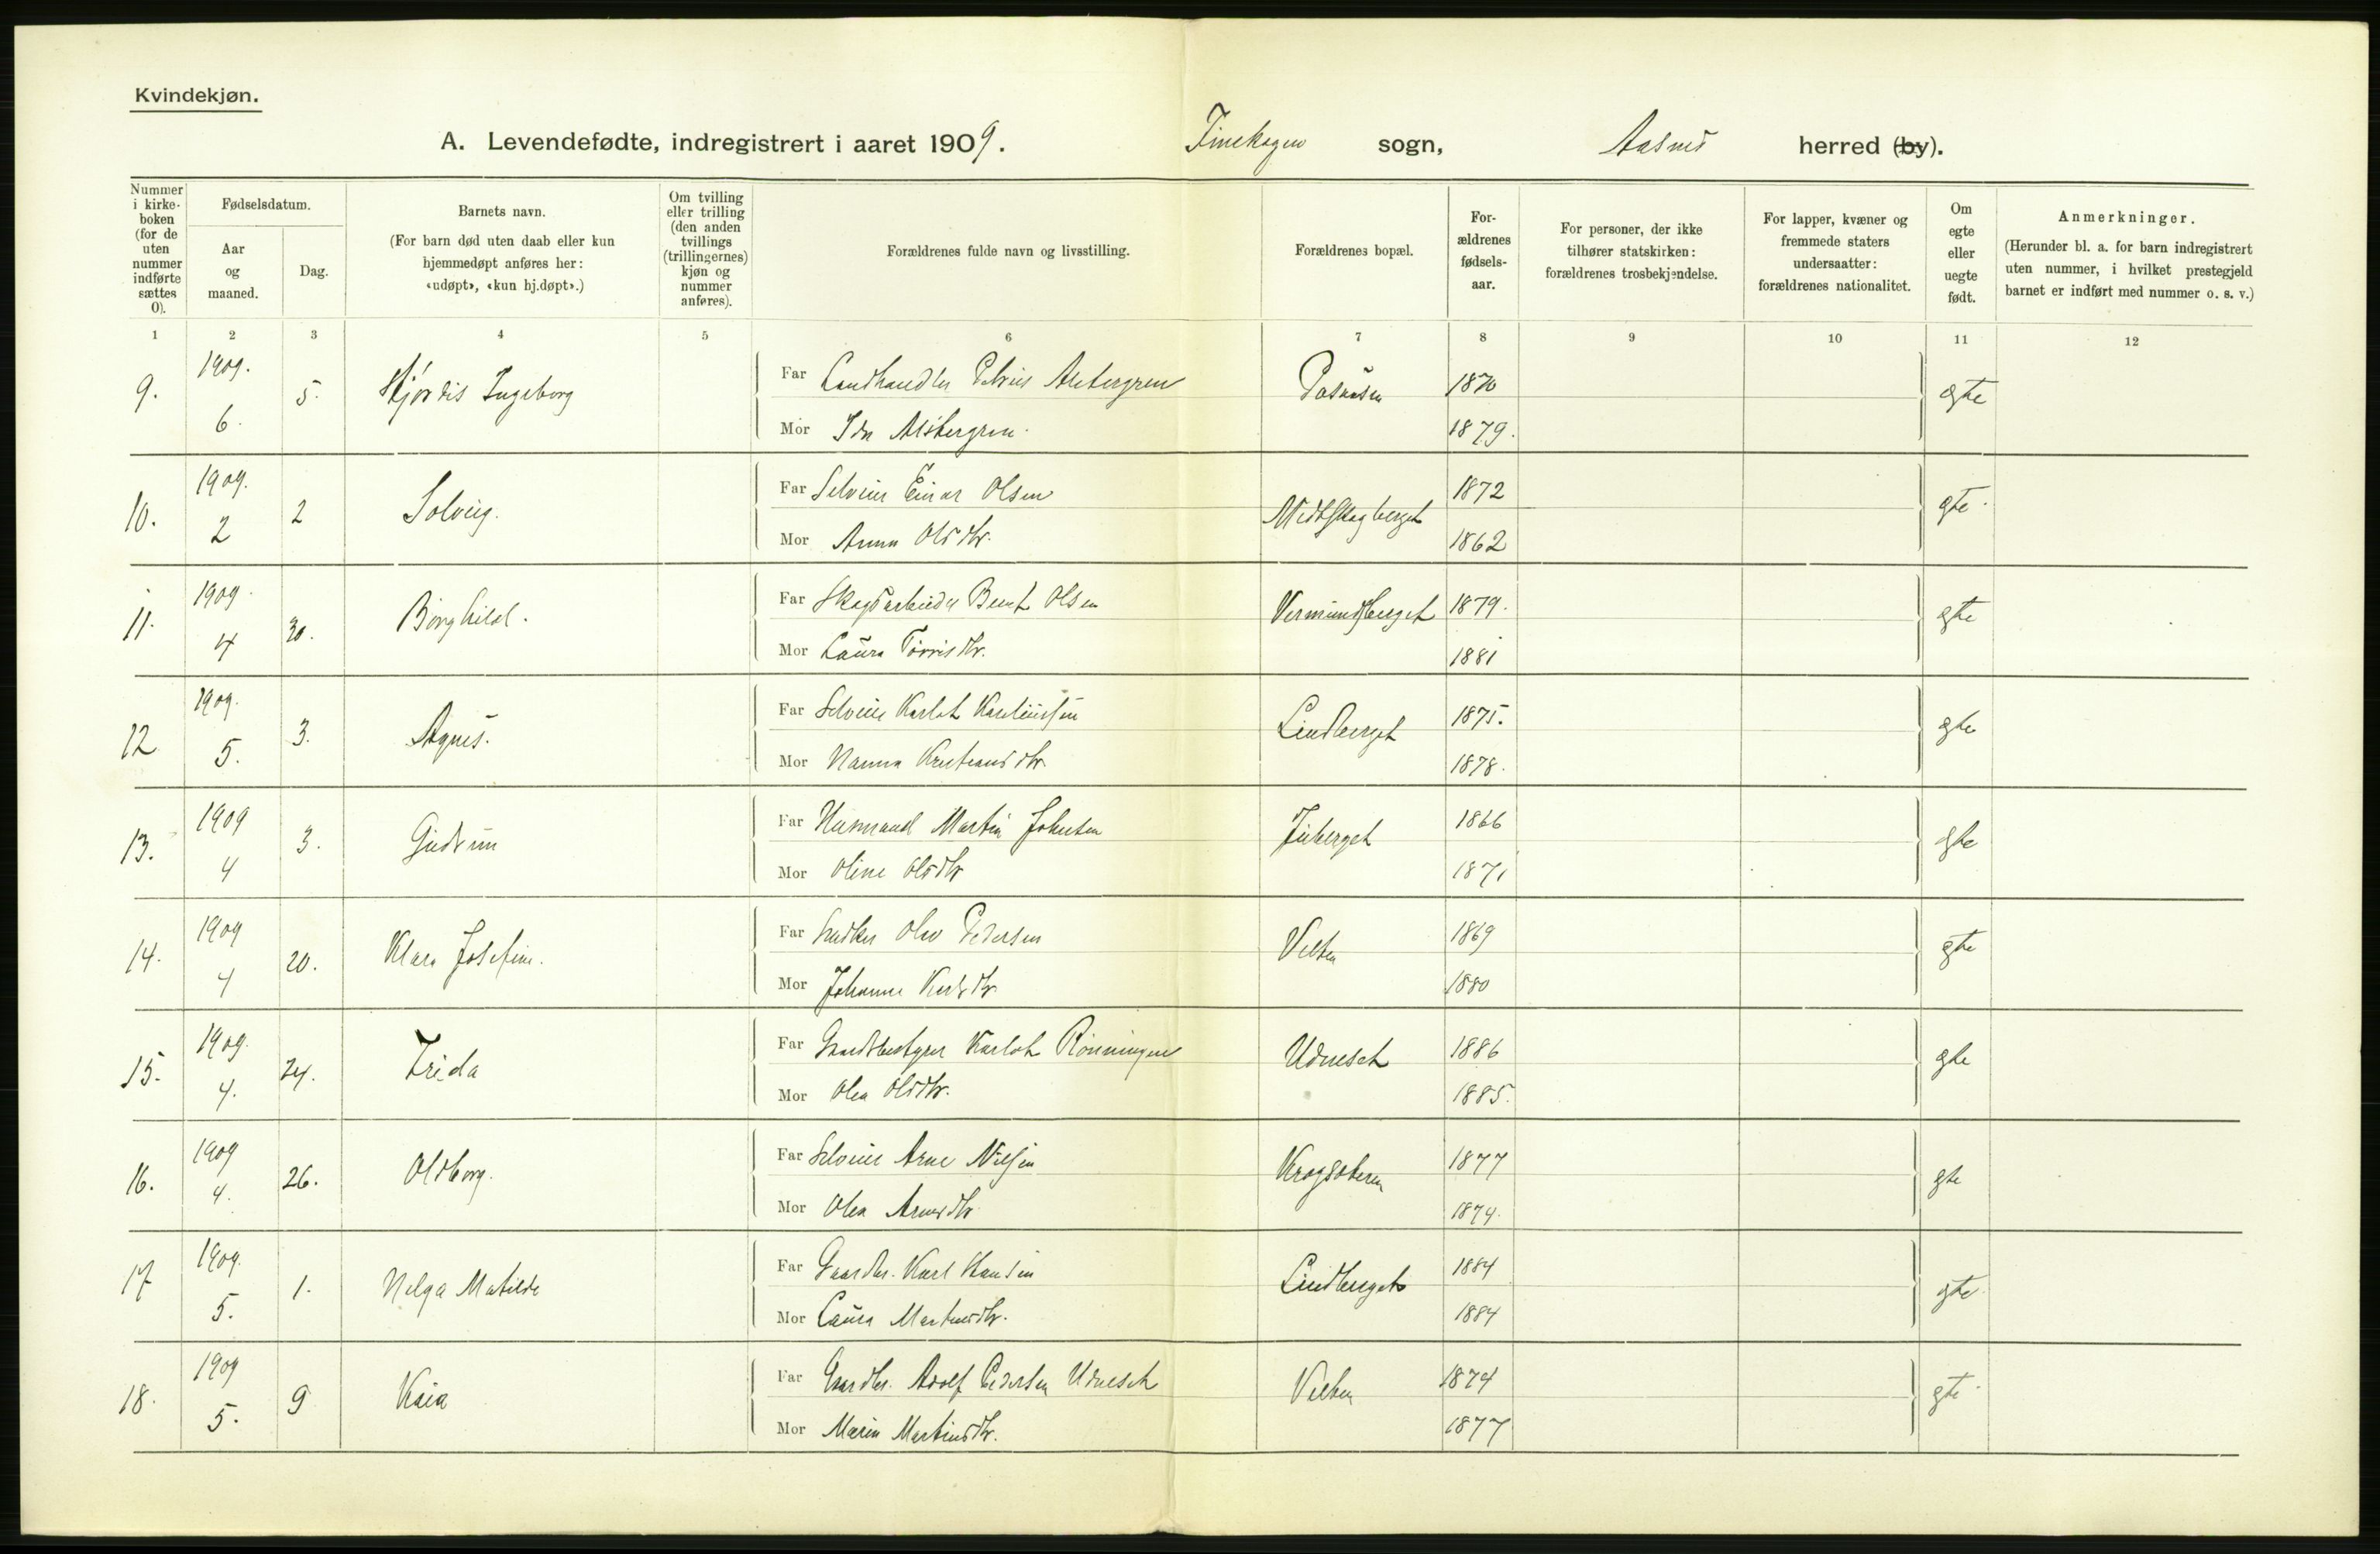 Kvindekjøn.
A. Levendefødte, indregistrert i aaret 1909. Finskogen sogn, Aasnes herred (by).
Nummer i kirke- boken (for de uten nummer indførte sættes 0).
Fødselsdatum.
Aar og maaned.
Dag.
Barnets navn.
(For barn død uten daab eller kun hjemmedøpt anføres her: «udøpt», «kun hj.døpt».)
Om tvilling eller trilling (den anden tvillings (trillingernes) kjøn og nummer anføres).
Forældrenes fulde navn og livsstilling.
Forældrenes bopæl.
For- ældrenes fødsels- aar.
For personer, der ikke tilhører statskirken: forældrenes trosbekjendelse.
For lapper, kvæner og fremmede staters undersaatter: forældrenes nationalitet.
Om egte eller uegte født.
Anmerkninger.
(Herunder bl. a. for barn indregistrert uten nummer, i hvilket prestegjeld barnet er indført med nummer o. s. v.)
1 2 3 4 5 6 7 8 9 10 11 12
9. 1909. 6. 5. Hjördis Ingeborg
Far Landhandler Petrus 1870 egte
Mor Ida 1879.
10. 1909. 2 2 Solveig.
Far Selveier Einar Olsen Medtskogberget 1872 gte
Mor Anna Olsdtr. 1862
11. 1909 4 30. Borghild.
Far Skogsarbeider Bernt Olsen Vermundsberget 1879. egte
Mor Laura Törrisdtr. 1881
12 1909. 5. 3. Agnes.
Far Selveier Karlot Lindberget 1875. gte
Mor Hanna Kristiansdtr. 1878.
13. 1909 4 3. Gudrun
Far Husmand Martin Johnsen 1866 egte
Mor Oline Olsdtr 1871
14. 1909 4 20. Klara Josefine.
Far Olov Pedersen Velten 1869 gte
Mor Johanne 1880
15. 1909. 4. 24. Frida
Far Gaardbestyrer Karlot Rönningen Udneset 1886 gte
Mor Olea Olsdtr. 1885.
16. 1909 4. 26. Oldborg.
Far Selveier Arne Nilsen 1877 gte
Mor Olea Arnesdtr. 1874.
17 1909. 5. 1. Helga Matilde
Far Gaardbr. Karl Hansen Lindberget 1884 gte
Mor Laura Martinsdtr. 1884
18. 1909 5. 9 Kaia
Far Gaardbr. Adolf Pedersen Udneset Velten 1874 gte
Mor Marin Martinsdtr. 1877